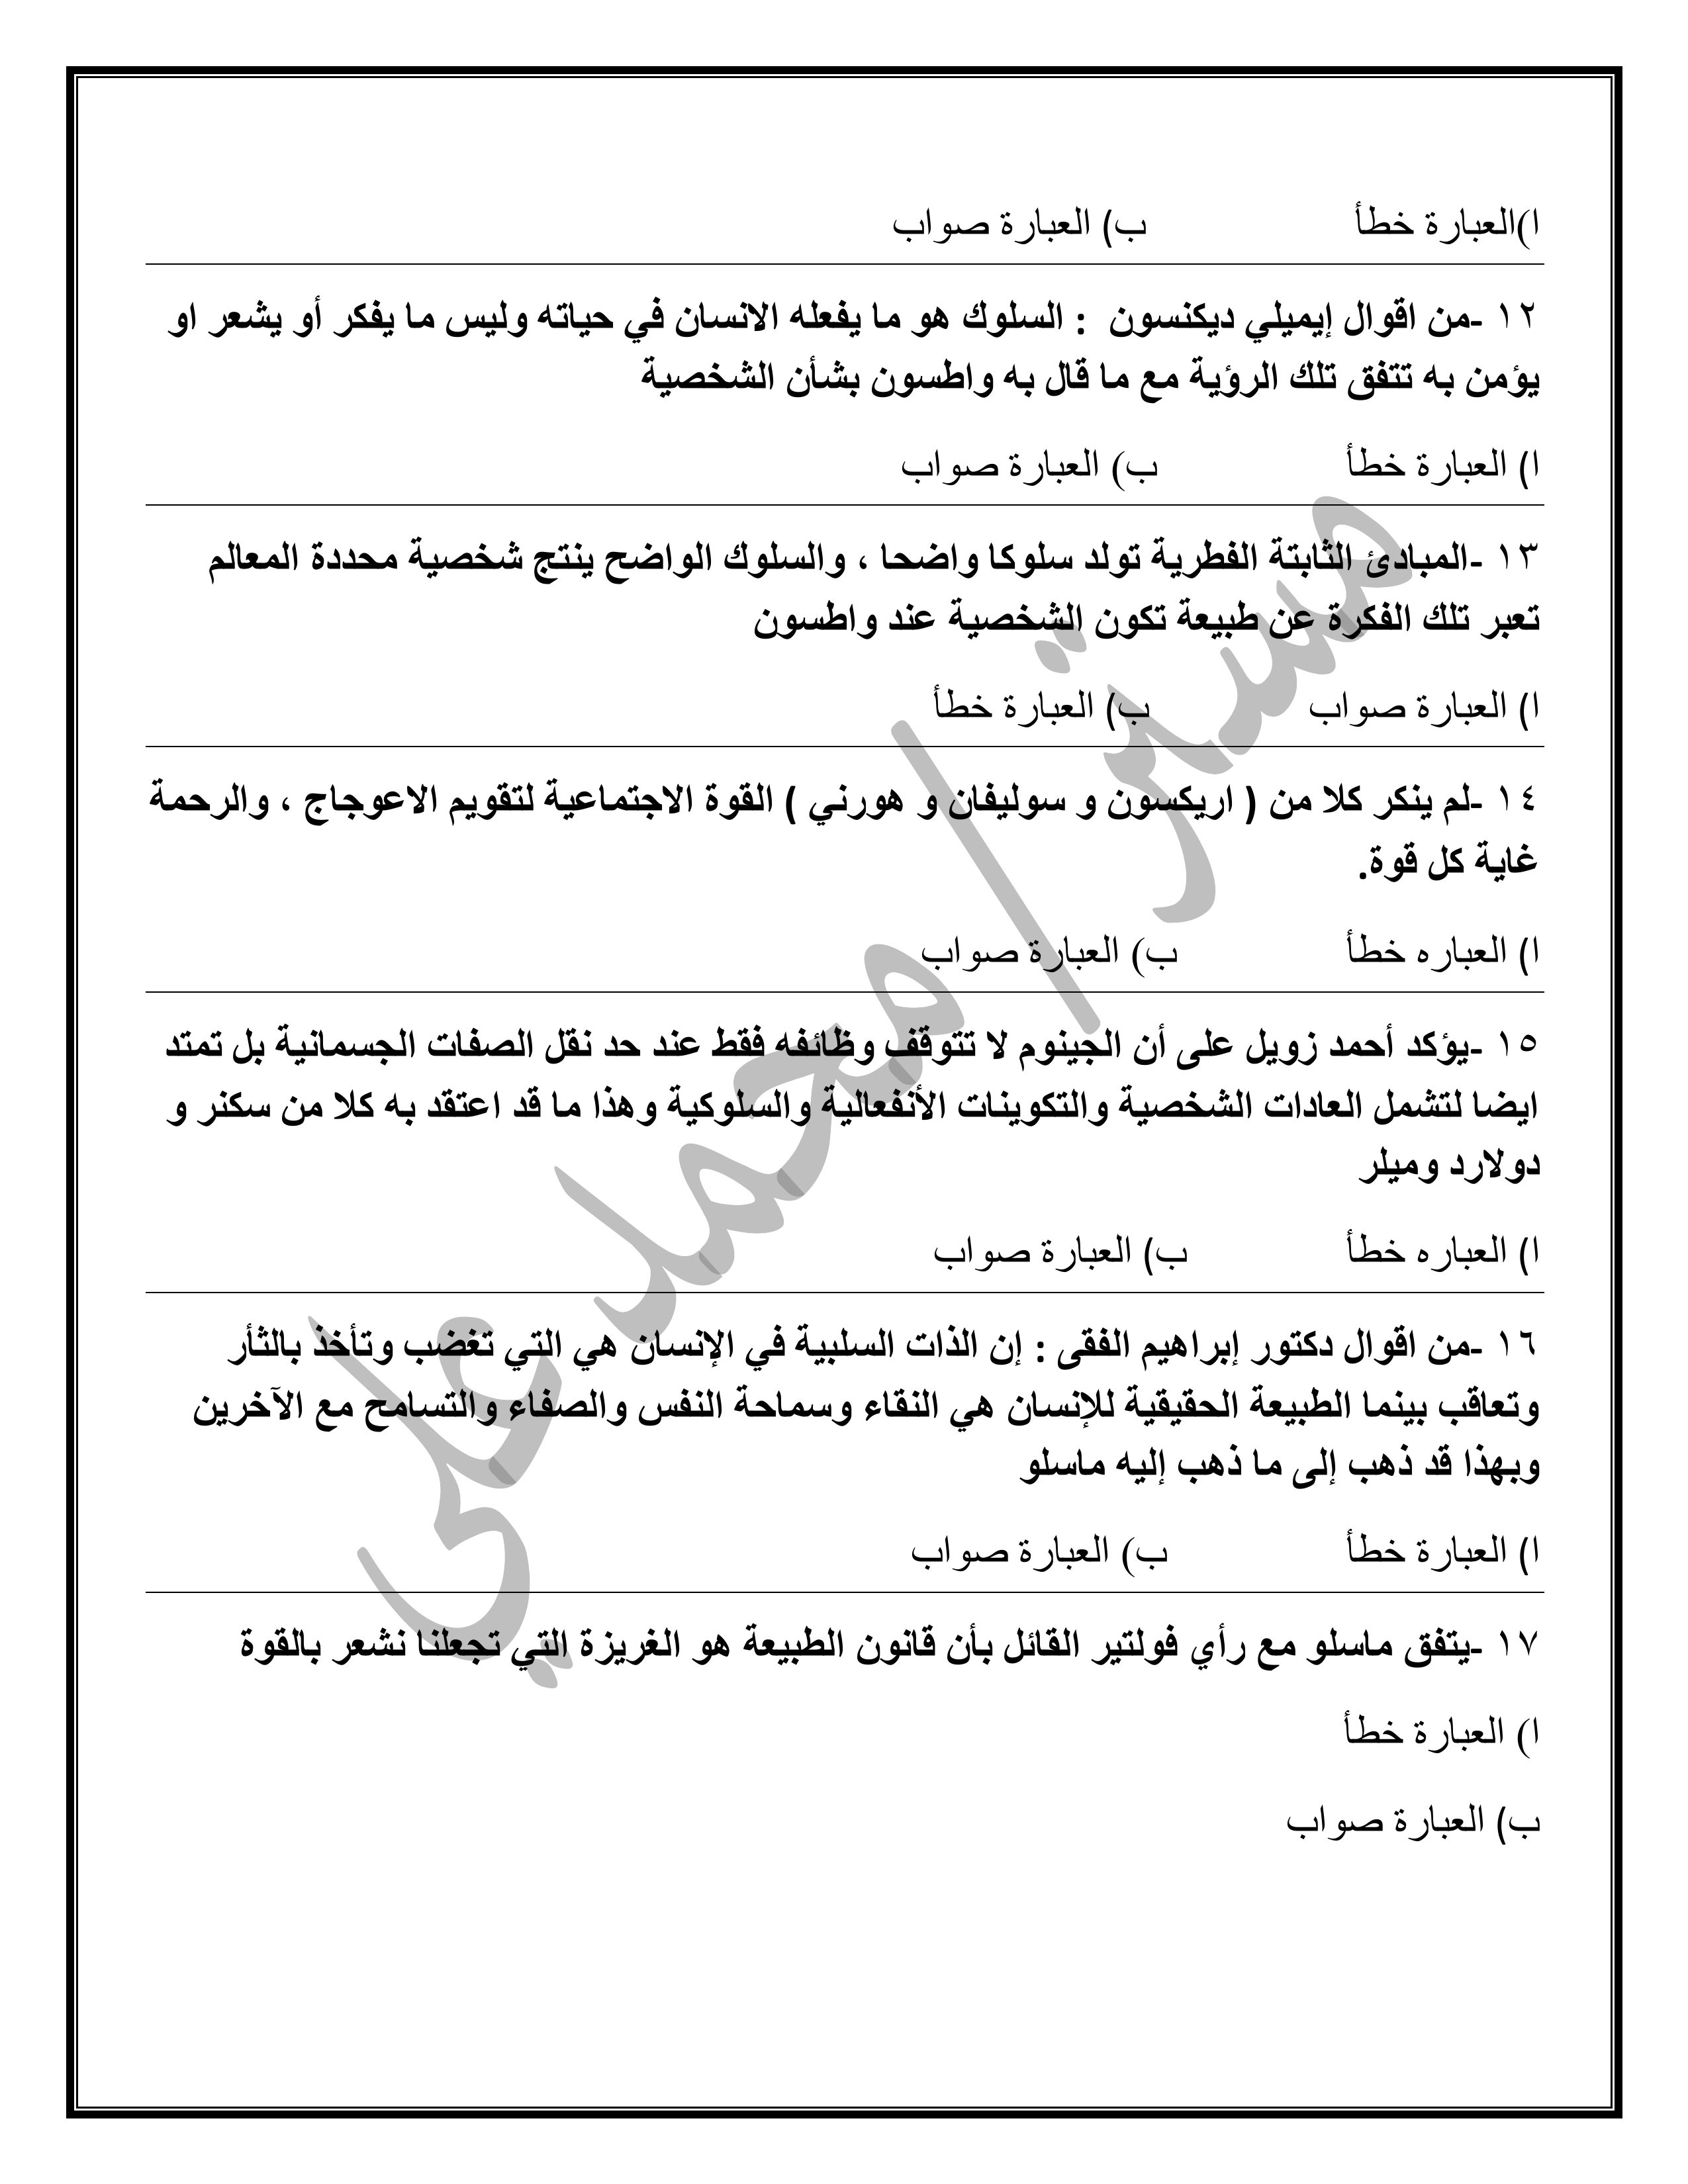 ا)العبارة خطأ ب) العبارة صواب
١٢ -من اقوال إيميلي ديكنسون : السلوك هو ما يفعله الانسان في حياته وليس ما يفكر أو يشعر او
يؤمن به تتفق تلك الرؤية مع ما قال به واطسون بشأن الشخصية
ا) العبارة خطأ ب) العبارة صواب
١٣ -المبادئ الثابتة الفطرية تولد سلوكا واضحا ، والسلوك الواضح ينتج شخصية محددة المعالم
تعبر تلك الفكرة عن طبيعة تكون الشخصية عند واطسون
ا) العبارة صواب ب) العبارة خطأ
١٤ -لم ينكر كلا من ( اريكسون و سوليفان و هورني ) القوة الاجتماعية لتقويم الاعوجاج ، والرحمة
غاية كل قوة.
ا) العباره خطأ ب) العبارة صواب
١٥ -يؤكد أحمد زويل على أن الجينوم لا تتوقف وظائفه فقط عند حد نقل الصفات الجسمانية بل تمتد
ايضا لتشمل العادات الشخصية والتكوينات الأنفعالية والسلوكية وهذا ما قد اعتقد به كلا من سكنر و
دولارد وميلر
ا) العباره خطأ ب) العبارة صواب
١٦ -من اقوال دكتور إبراهيم الفقى : إن الذات السلبية في الإنسان هي التي تغضب وتأخذ بالثأر
وتعاقب بينما الطبيعة الحقيقية للإنسان هي النقاء وسماحة النفس والصفاء والتسامح مع الآخرين
وبهذا قد ذهب إلى ما ذهب إليه ماسلو
ا) العبارة خطأ ب) العبارة صواب
١٧ -يتفق ماسلو مع رأي فولتير القائل بأن قانون الطبيعة هو الغريزة التي تجعلنا نشعر بالقوة
ا) العبارة خطأ
ب) العبارة صواب
مستر/محمد علي